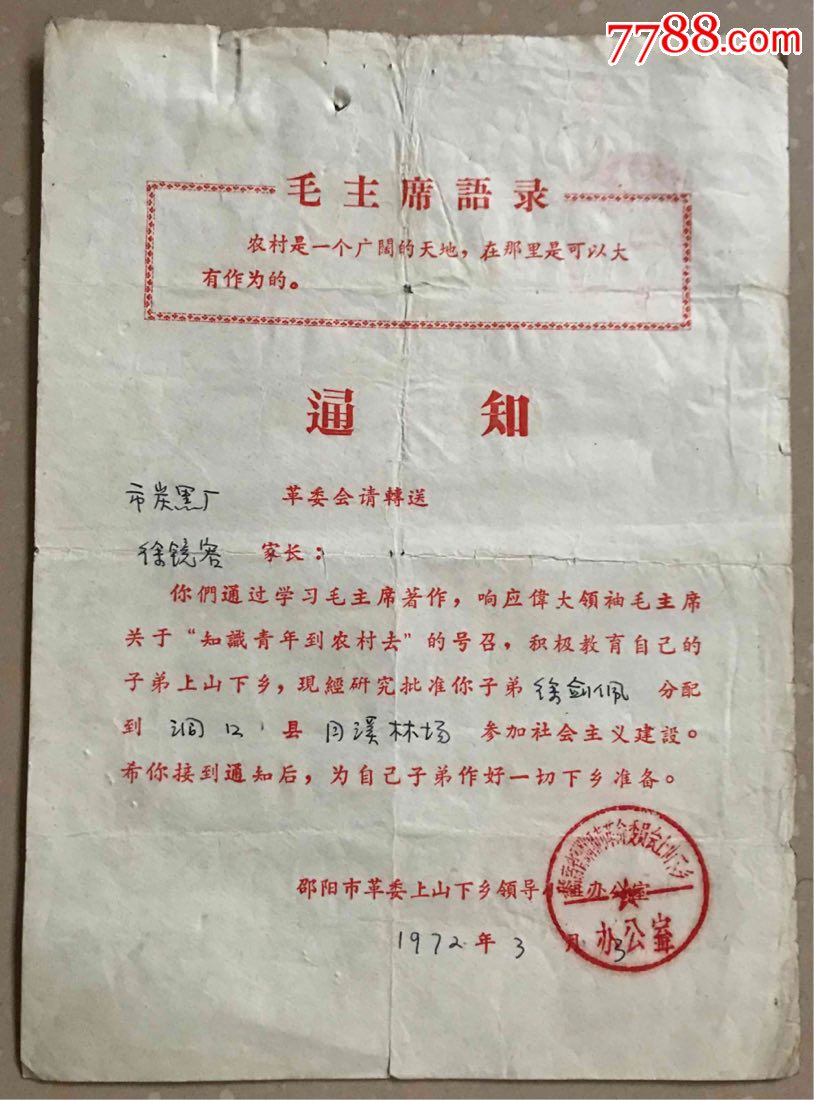 7788.com
毛主席語录
农村是一个广闊的天地，在那里是可以大
有作为的。
通 知
市炭黑厂 革委会请轉送
徐镜容 家长：
你們通过学习毛主席著作，响应偉大領袖毛主席
关于“知識青年到农村去”的号召，积极教育自己的
子弟上山下乡，現經研究批准你子弟徐剑佩 分配
到 洞口 县 月溪林场 参加社会主义建設。
希你接到通知后，为自己子弟作好一切下乡准备。
邵阳市革委上山下乡领导小組办公室
1972年3月3
革命委員会上山下乡
办公室